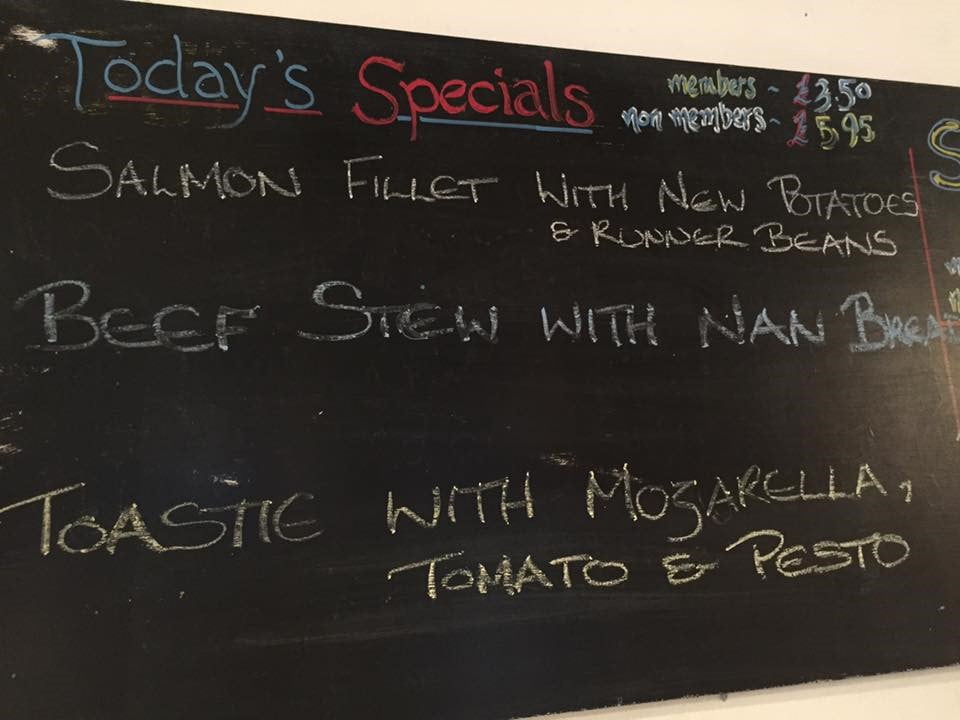 Today's Specials
members - £3.50
non members - £5.95
SALMON FILLET WITH NEW POTATOES
& RUNNER BEANS
BEEF STEW WITH NAN BREAD
TOASTIE WITH MOZARELLA,
TOMATO & PESTO